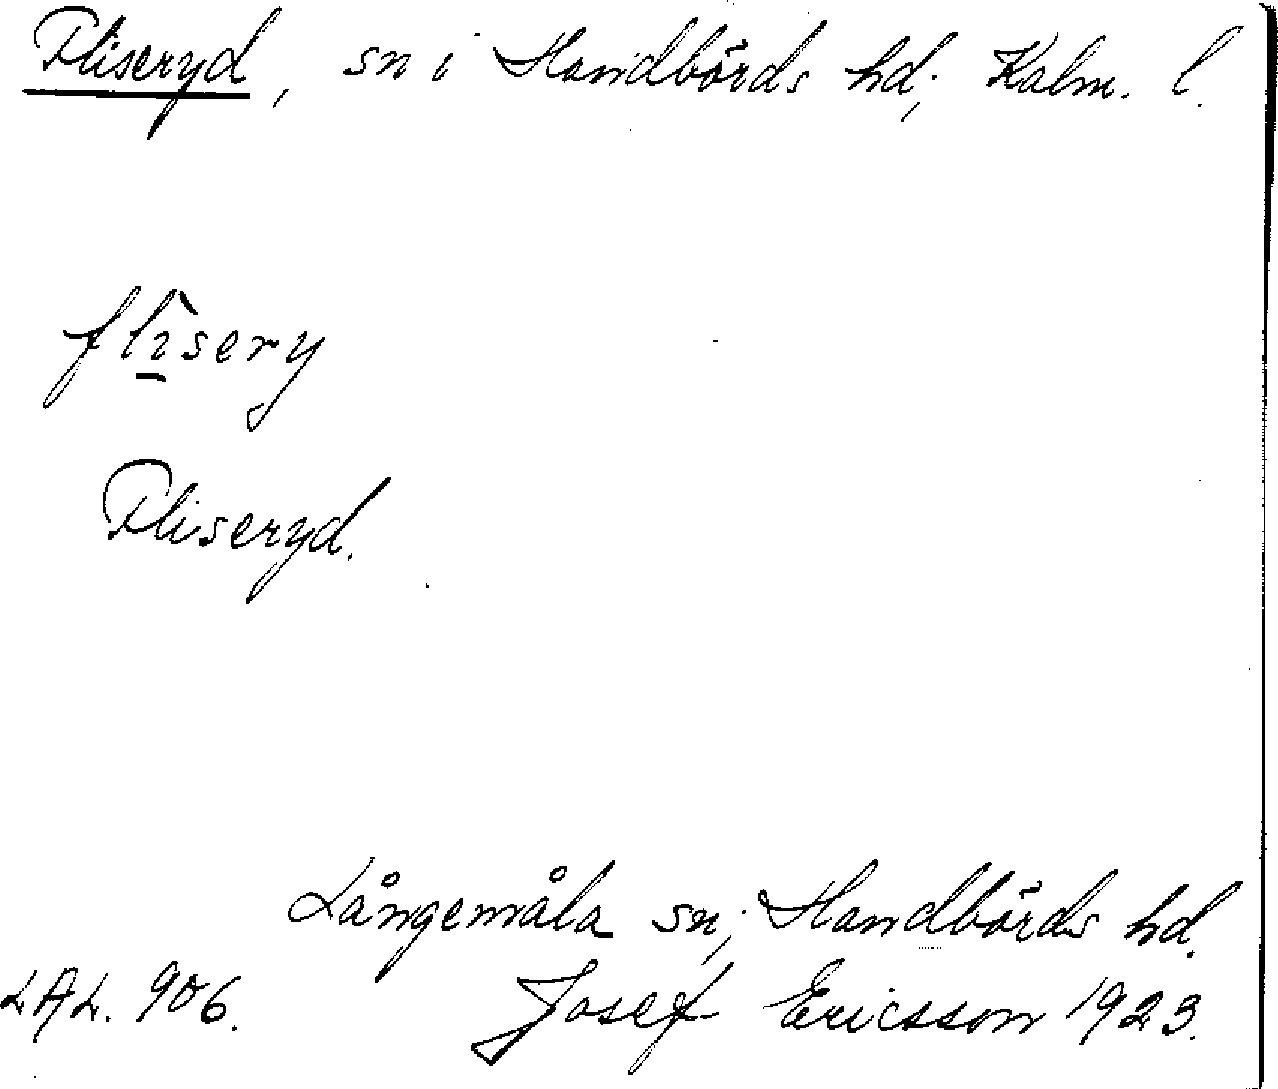 Fliseryd, sn i Handbörds hd; Kalm. l.
flìsery
Fliseryd.
Långemåla sn; Handbörds hd.
LAL. 906. Josef Ericsson 1923.